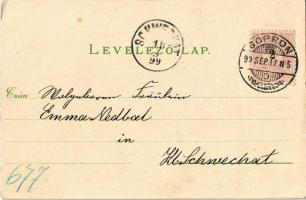 SCHWECHAT
18
99
LEVELEZŐ-LAP.
SOPRON
99 SEP. 17 N 5
Czim: Wolgeboren Fräulein
Emma Nedbal
in
Kl. Schwechat
677